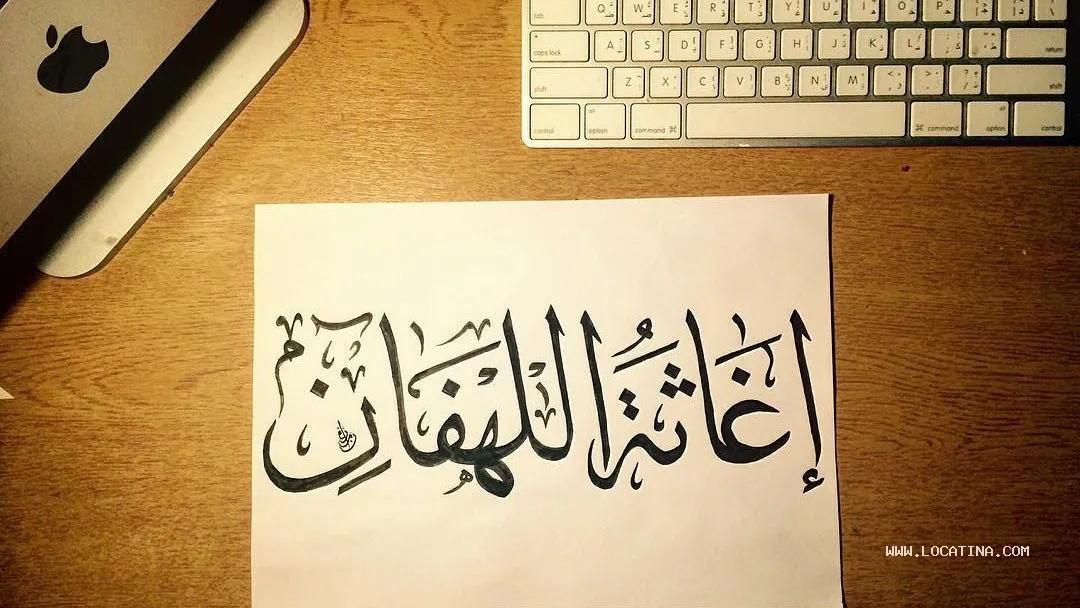 tab Q W E R T Y U I O P
caps lock A S D F G H J K L return
shift Z X C V B N M < > ? / shift
control alt option command ⌘ ⌘ command alt option control
إغاثةُ اللهفانِ
WWW.LOCATINA.COM